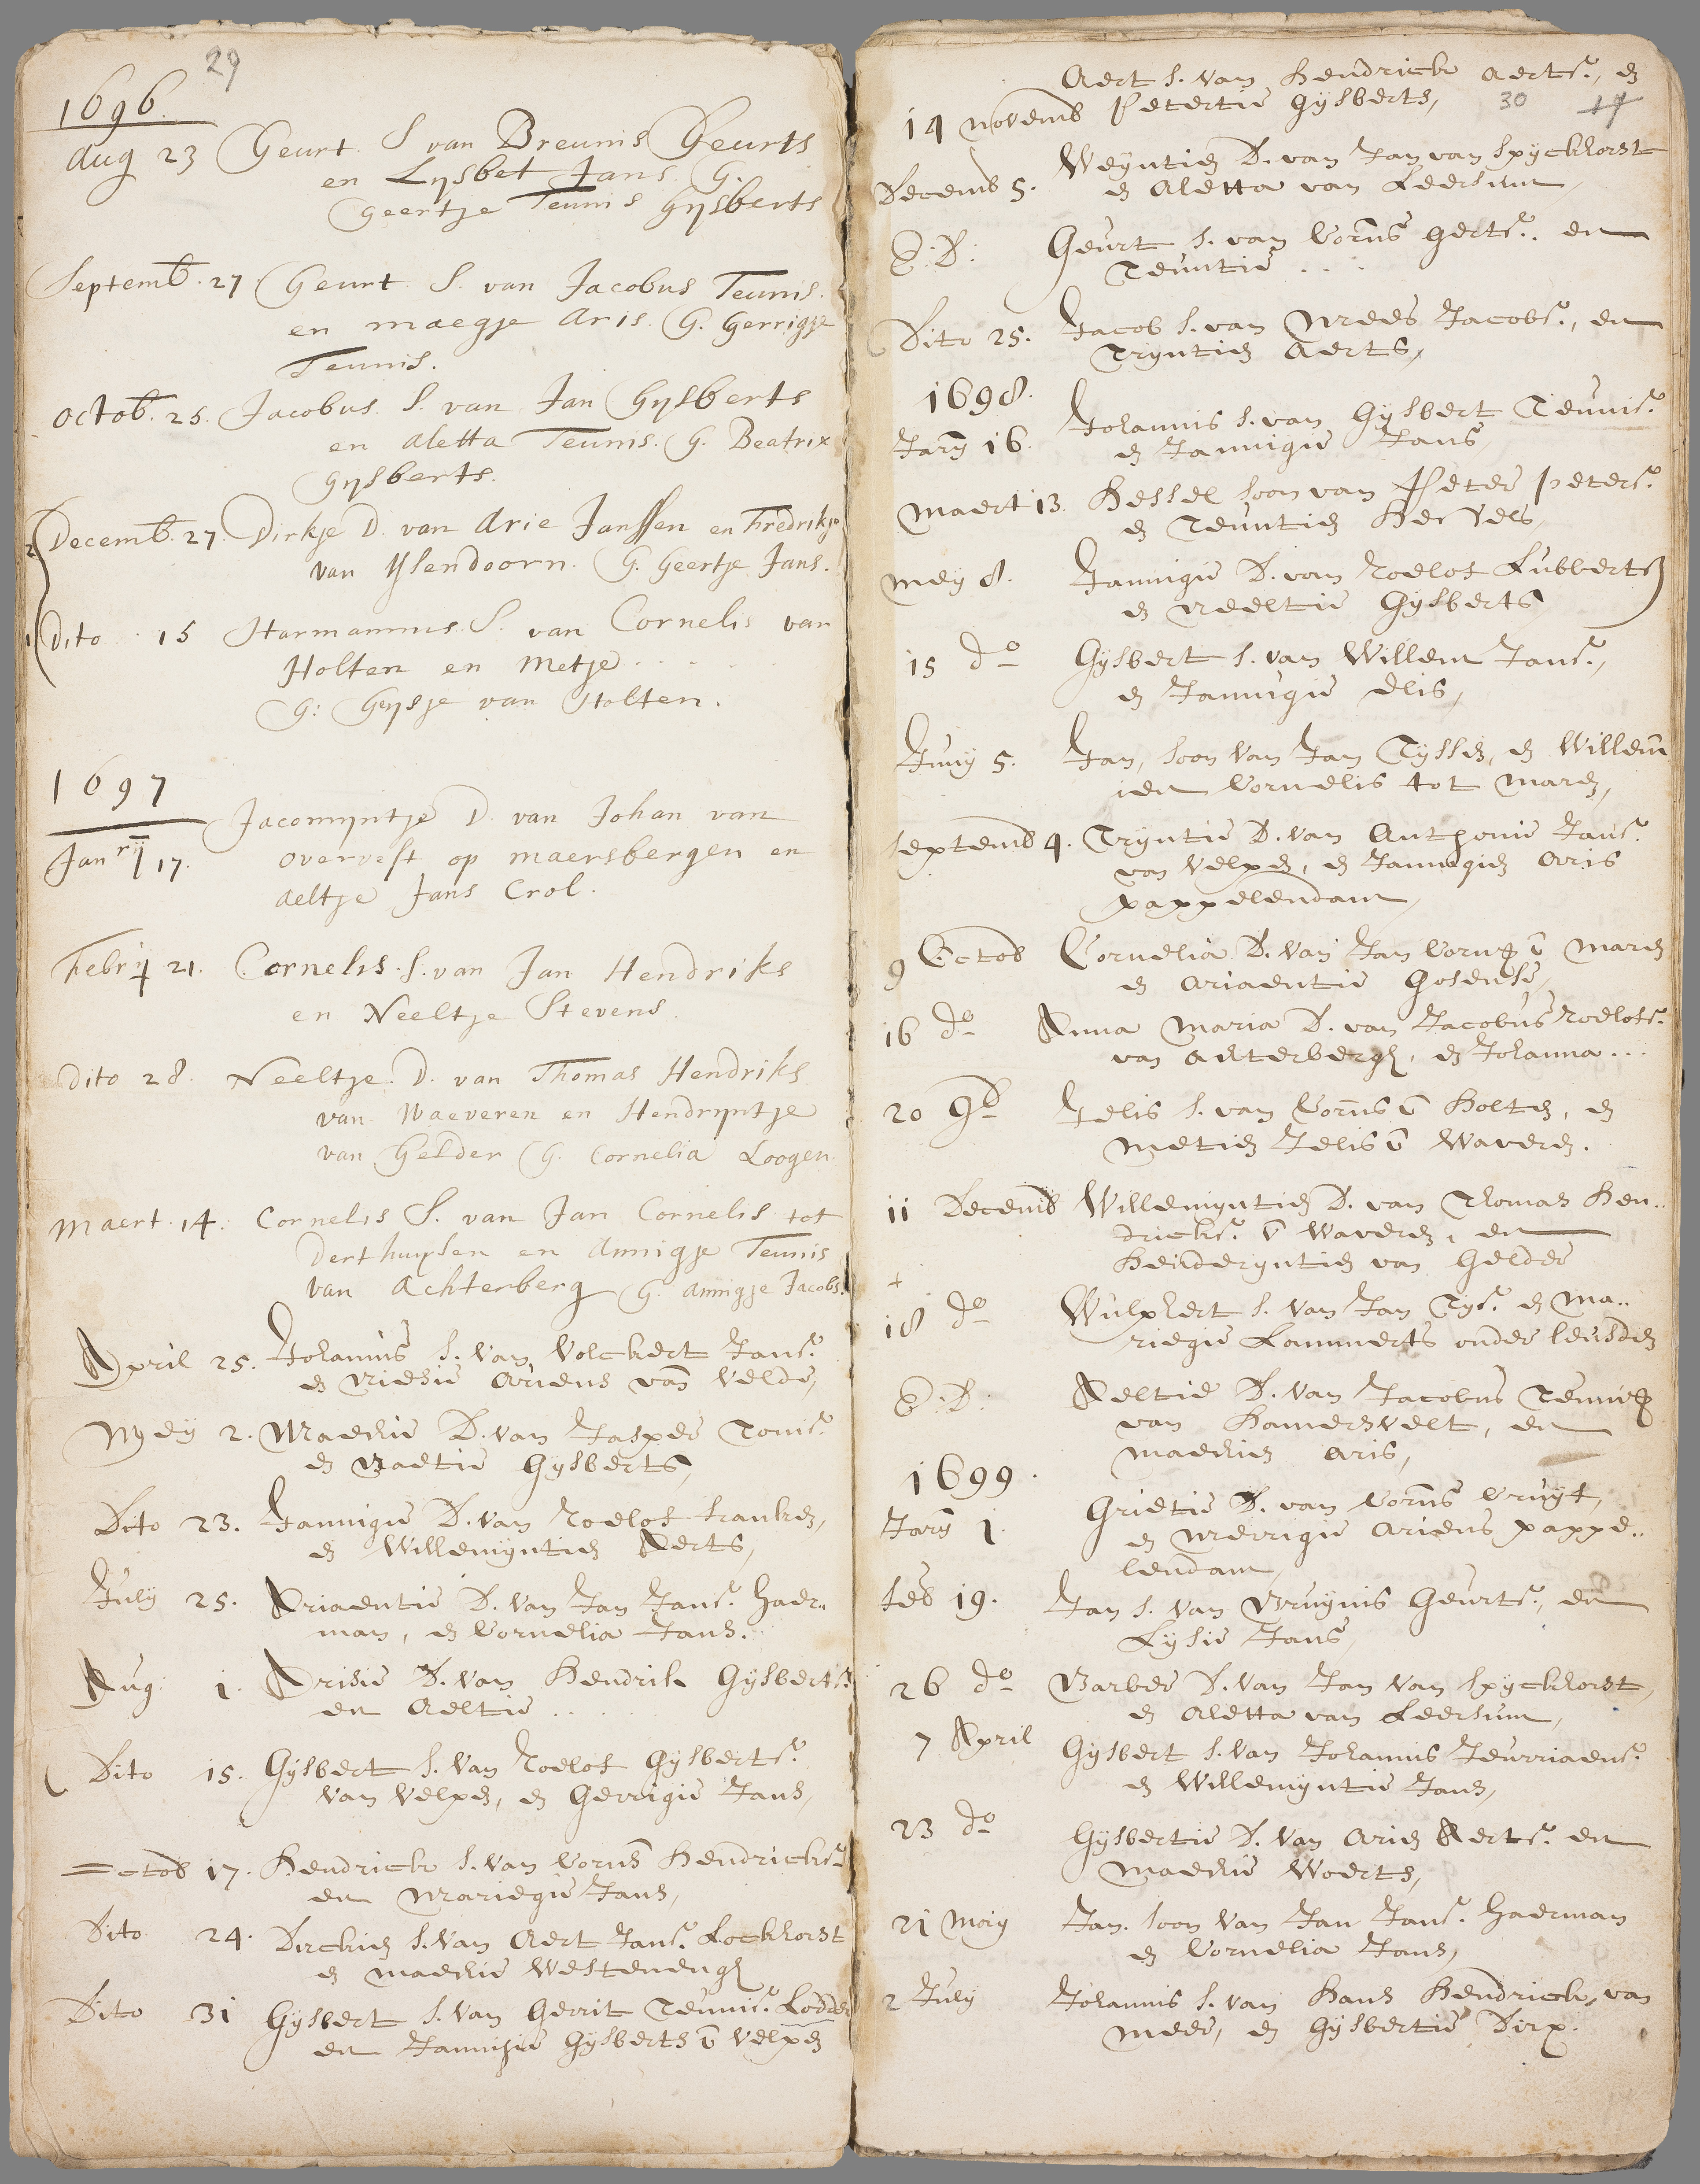 29
1696.
Aug 23 Geurt S van Breunis Geurts
en Lysbet Jans G.
Geertje Teunis Gysberts
Septemb. 27 Geurt S. van Jacobus Teunis.
en maegje Aris. G. Gerrigje
Teunis.
Octob. 25. Jacobus S. van Jan Gysberts
en Aletta Teunis. G. Beatrix
Gysberts.
2 Decemb. 27. Dirkje D. van Arie Janssen en Fredrikje
van Yslendoorn. G. Geertje Jans.
1 Dito 15 Harmannus S. van Cornelis van
Holten en Metje . . . .
G: Gysje van Holten.
1697
Janry 17. Jacomyntje D. van Johan van
overvest op maersbergen en
Aeltje Jans Crol.
Febrij 21. Cornelis S. van Jan Hendriks
en Neeltje Stevens.
Dito 28. Neeltje D. van Thomas Hendriks
van Waeveren en Hendryntje
van Gelder G. Cornelia Loogen
Maert 14. Cornelis S. van Jan Cornelis tot
Derthuysen en Annigje Teunis
van Achterberg G. Annigje Jacobs.
April 25. Johannis S. van Volckert Jans.
en Niesie Ariens van Velde,
Mey 2. Maechie D. van Jasper Tonis.
en Baetie Gysberts,
Dito 23. Jannigie D. van Roelof franken,
en Willemyntien Aerts,
July 25. Ariaentie D. van Jan Jans. Haer..
man, en Cornelia Jans.
Aug 1. Arisie D. van Hendrik Gysberts.
en Aeltie . . .
Dito 15. Gysbert S. van Roelof Gysberts.
van Velpen, en Gerrigie Jans,
Octob 17. Hendrick S. van Corns Hendricks.
en Mariegie Jans,
Dito 24. Dirckien S. van Aert Jans. Lockhorst
en Maechie Westenengh
Dito 31 Gysbert S. van Gerrit Teunis. Lodder
en Jannisie Gysberts v Velpen
Aert S. van Hendrick Aerts., en
14 novemb Petertie Gysberts,
30 17
Decemb 5. Weyntien D. van Jan van Spyckhorst
en Aletta van Leersum,
E.D. Geurt S. van Corns Gerts.. en
Teuntie . . .
Dito 25. Jacob S. van Mees Jacobs., en
Tryntien Aerts,
1698.
Jary 16. Johannis S. van Gysbert Teunis.
en Jannigie Jans,
Maert 13. Hessel soon van Peter Peters.
en Teuntien Hessels,
Mey 8. Jannigie D. van Roelof Lubberts
en Neeltie Gysberts
15 do Gysbert S. van Willem Jans.,
en Jannigie Elis,
Juny 5. Jan, soon van Jan Tyssen, en Willem
ien Cornelis tot Maren,
Septemb 4. Tryntie D. van Anthonie Jans.
van Velpen, en Jannegien Aris
pappelendam,
9 Octob Cornelia D. van Jan Corns v Maren
en Ariaentie Gosense,
16 do Anna Maria D. van Jacobus Roelofs.
van Achterbergh, en Johanna...
20 9b Jelis S. van Corns v Holten, en
Metien Jelis v Waveren.
11 Decemb Willemyntien D. van Thomas Hen..
dricks. v Waveren, en
Heinderyntien van Gelder
+
18 do Wulphert S. van Jan Tys. en Ma..
riegie Lammerts onder leusden
E.D. Aeltie D. van Jacobus Teunis
van Hamersvelt, en
Maechien Aris,
1699.
Jary 1. Grietie D. van Corns Cruyf,
en Merrigie Ariens pappe..
lendam,
feb 19. Jan S. van Bruynis Geurts., en
Lysie Jans,
26 do Barber D. van Jan van Spyckhorst,
en Aletta van Leersum,
7 April Gysbert S. van Johannis Jeurriaens.
en Willemyntie Jans,
23 do Gysbertie D. van Arien Aerts. en
Maechie Woerts,
21 Maiy Jan. soon van Jan Jans. Haerman
en Cornelia Jans,
2 July Johannis S. van Hans Hendricks van
Meer, en Gysbertie Dirx.